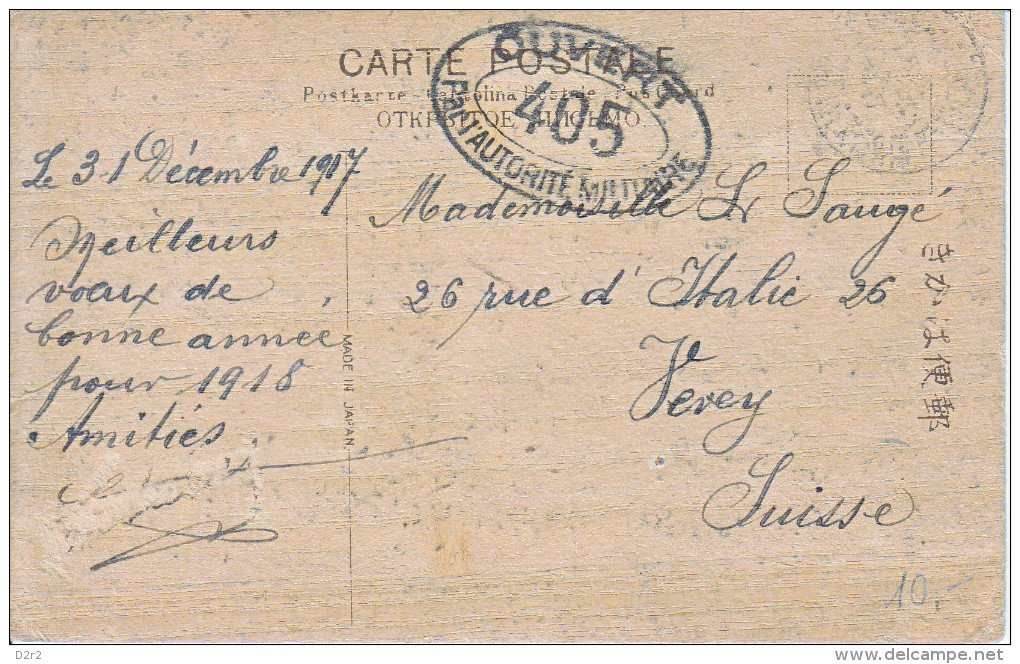 CARTE POSTALE
Postkarte - Cartolina Postale - Post Card
ОТКРЫТОЕ ПИСЬМО.
OUVERT
405
PAR L'AUTORITÉ MILITAIRE
Le 31 Décembre 1917
Meilleurs
voeux de
bonne année
pour 1918
Amitiés.
MADE IN JAPAN.
Mademoiselle L. Saugé
26 rue d'Italie 26
Vevey
Suisse
きかは便郵
10.-
D2r2
delcampe.net